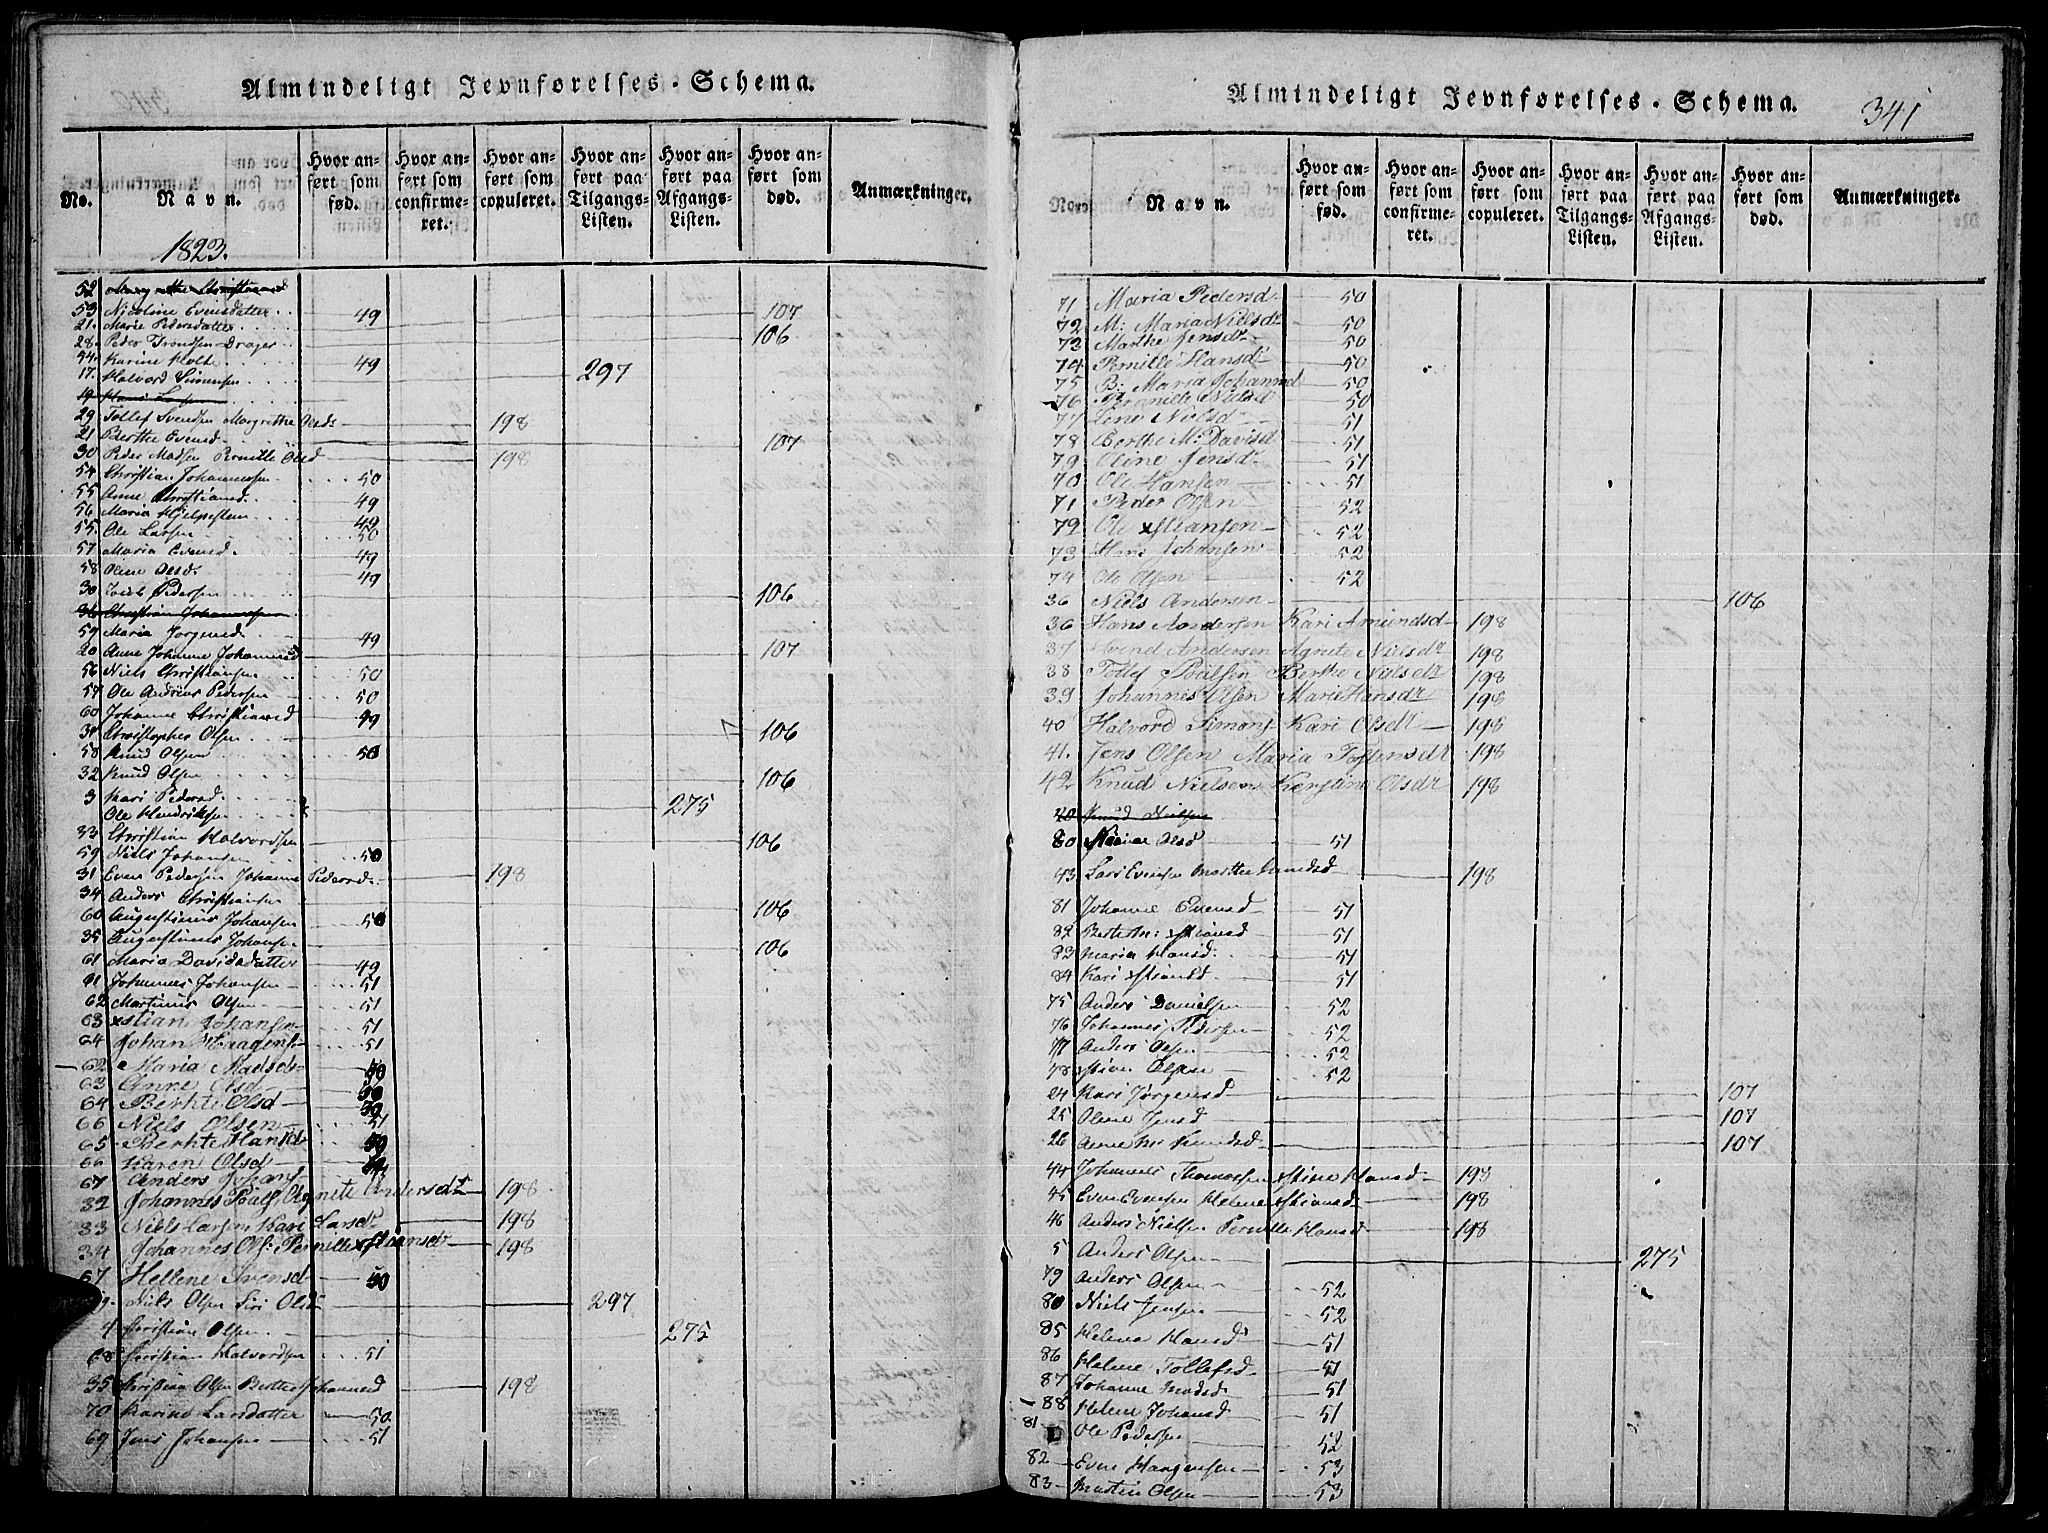 Almindeligt Jevnførelses-Schema.
No. Navn. Hvor anført som fød. Hvor anført som confirmeret. Hvor anført som copuleret. Hvor anført paa Tilgangs-Listen. Hvor anført paa Afgangs-Listen. Hvor anført som død. Anmærkninger.
1823.
52
53 Nicoline Evensdatter 49
21. Marie Pedersdatter 107
28. Peder Trondsen Drager 106
54. Karine Holte 49
17. Halvord Simensen 297
19
29 Tollef Svendsen Margrethe Olsds 198
21 Berthe Evensd 107
30 Peder Madsen Pernille Olsd 198
54 Christian Johannessen 50
55 Anne Christiansd. 49
56 Maria Hjelpesteen 49
55. Ole Larsen 50
57 Maria Evensd. 49
58 Oline Olsd. 49
30 Pedersen 106
36 Christian Johannessen
59 Maria Jorgensd. 49
20 Anne Johanne Johannesd 107
56 Niels Christiansen 50
57 Ole Andreas Pedersen 50
60 Johanne Christiansd 49
31 Christopher Olsen 106
58 Knud Olsen 50
32 Knud Olsen 106
3 Kari Pedersd. 275
Ole Hendriksen
33 Christian Halvordsen 106
59 Niels Johansen 50
31 Even Pedersen Johanne Pedersd. 198
34 Anders Christiansen 106
60 Augustinus Johansen 50
35 Augustinus Johansen 106
61 Maria Davidsdatter 49
61 Johannes Johansen 51
62 Martinus Olsen 51
63 xstian Johansen 51
64 Johan Haagens 51
62 Maria Madsd 50
63 Anne Olsd 50
64 Berhte Olsd 50
66 Niels Olsen 51
65 Berhte Hansd 50
66 Karen Olsd
67 Anders Johans
32 Johannes Poals. Agnete Andersdt 198
33 Niels Larsen Kari Larsdt 198
34 Johannes Ols: Pernille xstiansd 198
67 Hellene Svensd 50
Niels Olsen Siri Olsd 297
4 Christian Olsen 275
68 Christian Halvordsen 51
35 Christian Olsen Berthe Johannesd 198
70 Karine Larsdatter 50
69 Jens Johansen 51
Almindeligt Jevnførelses-Schema.
341
No. Navn. Hvor anført som fød. Hvor anført som confirmeret. Hvor anført som copuleret. Hvor anført paa Tilgangs-Listen. Hvor anført paa Afgangs-Listen. Hvor anført som død. Anmærkninger.
71 Maria Pedersd 50
72 M: Maria Nielsdr 50
73 Marthe Jensdr 50
74 Pernille Hansd 50
75 B: Maria Johannesd 50
76 Pernille Nielsd 50
77 Lene Nielsd 51
78 Berthe M: Davisd 51
79 Oline Jensdr 51
70 Ole Hansen 51
71 Peder Olsen 52
72 Ole xstiansen 52
73 Hans Johansen 52
74 Ole Olsen 52
36 Niels Andersen 106
36 Hans Andersen Kari Amundsd 198
37 Andersen Agnete Nielsdr 198
38 Tollef Poulsen Berthe Nielsdr 198
39 Johannes Olsen Marie Hansdr 198
40 Halvord Simons Kari Olsdr 198
41. Jens Olsen Maria Tostensdr 198
42 Knud Nielsen Kerstine Olsdr 198
40 Knud Nielsen
80 Olsd 51
43 Lars Evensen Marthe 198
81 Johanne Evensd 51
82 Berthe M: xstiansd 51
83 Maria Hansd. 51
84 Kari xstiansd 51
75 Anders Danielsen 52
76 Johannes Pedersen 52
77 Anders Olsen 52
78 Olsen 52
24 Kari Jørgensd 107
25 Olene Jensd 107
26 Anne M: Knudsd 107
44 Johannes Thomassen xstine Hansd 198
45 Even Evensen Helene xstiansd 198
46 Anders Nielsen Pernille Hansd 198
5 Anders Olsen 275
79 Anders Olsen 52
80 Niels Jensen 52
85 Helena Hansd 51
86 Helene Tollefsd 51
87 Johanne Madsd 51
88 Helene Johansd 51
81 Ole Pedersen 52
82 Even Haagensen 53
83 Martin Olsen 53